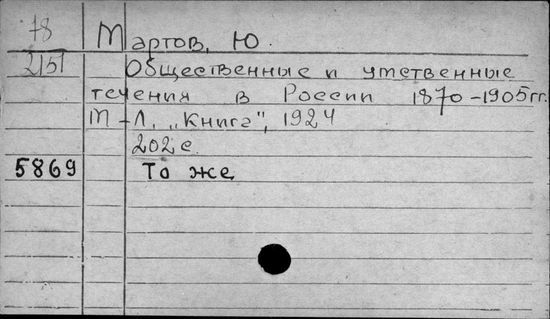 78 Мартов, Ю.
2151 Общественные и умственные
течения в России 1870-1905гг.
М-Л. "Книга", 1924
202 с.
5869 То же